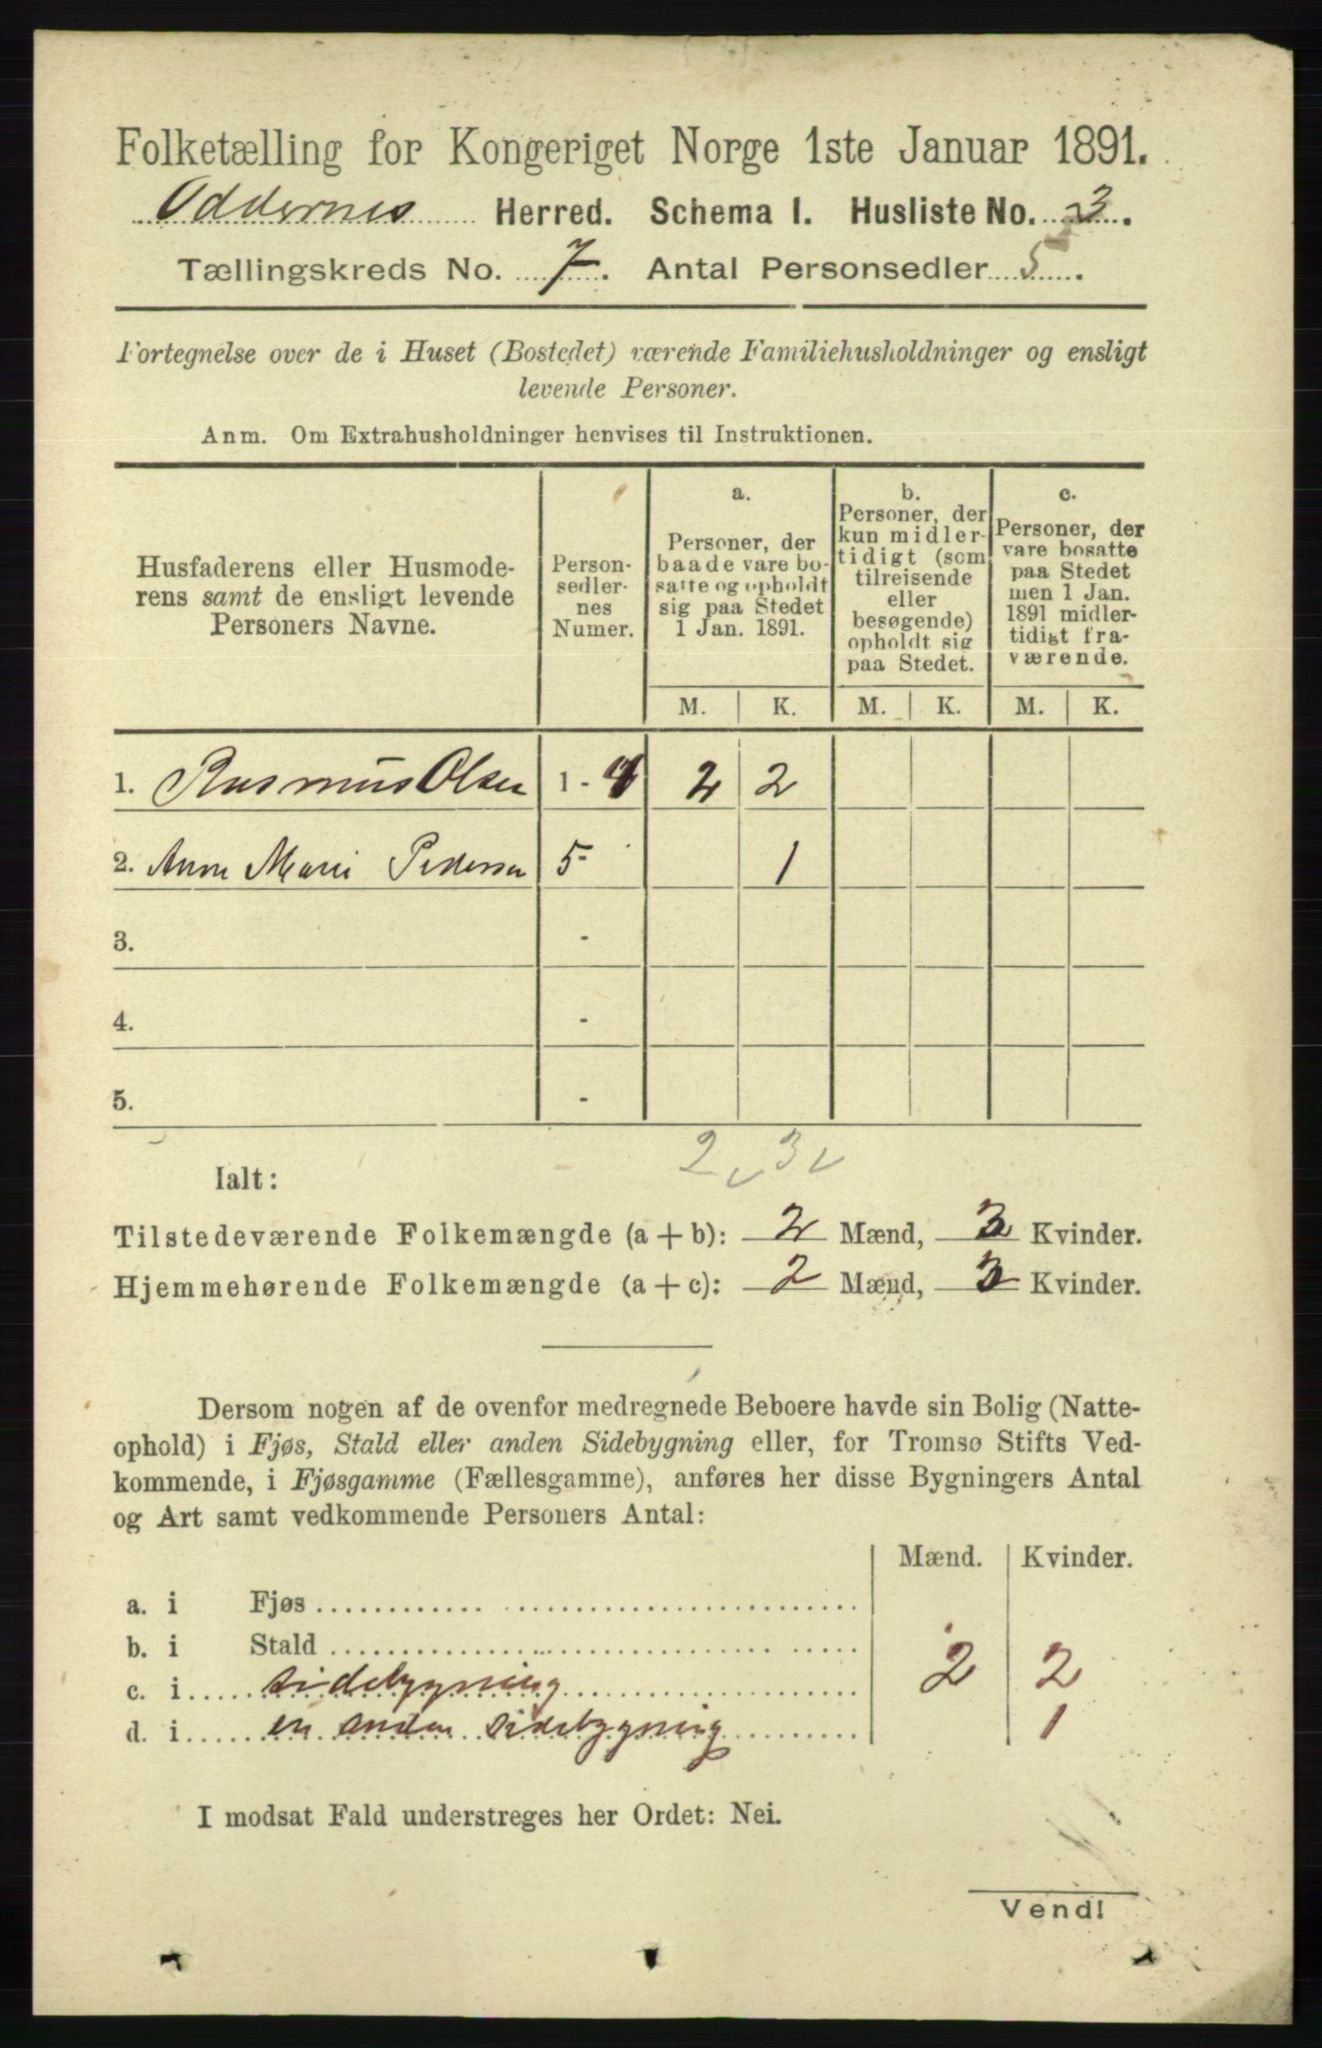 Folketælling for Kongeriget Norge 1ste Januar 1891.
Oddernes Herred. Schema I. Husliste No. 3.
Tællingskreds No. 7. Antal Personsedler 5.
Fortegnelse over de i Huset (Bostedet) værende Familiehusholdninger og ensligt
levende Personer.
Anm. Om Extrahusholdninger henvises til Instruktionen.
Husfaderens eller Husmode-
rens samt de ensligt levende
Personers Navne.
Person-
sedler-
nes
Numer.
a.
Personer, der
baade vare bo-
satte og opholdt
sig paa Stedet
1 Jan. 1891.
b.
Personer, der
kun midler-
tidigt (som
tilreisende
eller
besøgende)
opholdt sig
paa Stedet.
c.
Personer, der
vare bosatte
paa Stedet
men 1 Jan.
1891 midler-
tidigt fra-
værende.
M. K. M. K. M. K.
1. Rasmus Olsen 1 - 4 2 2
2. Anne Marie Pedersen 5 - 1
3. -
4. -
5. -
2 3
Ialt:
Tilstedeværende Folkemængde (a + b): 2 Mænd, 3 Kvinder.
Hjemmehørende Folkemængde (a + c): 2 Mænd, 3 Kvinder.
Dersom nogen af de ovenfor medregnede Beboere havde sin Bolig (Natte-
ophold) i Fjøs, Stald eller anden Sidebygning eller, for Tromsø Stifts Ved-
kommende, i Fjøsgamme (Fællesgamme), anføres her disse Bygningers Antal
og Art samt vedkommende Personers Antal:
Mænd. Kvinder.
a. i Fjøs
b. i Stald
c. i sidebygning 2 2
d. i en anden sidebygning 1
I modsat Fald understreges her Ordet: Nei.
Vend!